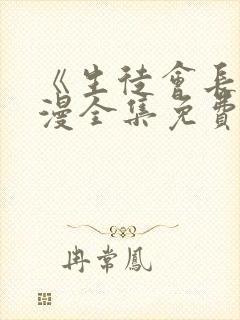 《生徒會長
漫全集免費
冉常鳳